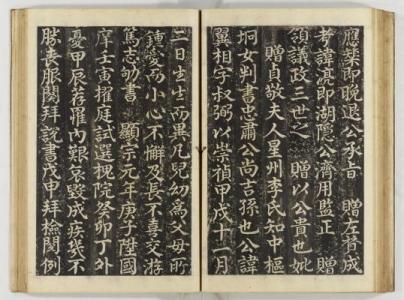 應榘即晚退公承旨　贈左贊成
考諱亮即湖隱公濟用監正　贈
領議政三世之　贈以公貴也妣
贈貞敬夫人星州李氏知中樞
坷女判書忠肅公尚吉孫也公諱
翼相字叔弼以崇禎甲戌十一月
二日生生而異凡兒幼爲父母所
鍾愛而小心不懈及長不喜交游
篤志劬書　顯宗元年庚子陞國
庠壬寅擢庭試選槐院癸卯丁外
憂甲辰荐罹內艱哀毀成疾幾不
勝喪服闋拜說書戊申拜檢閱例